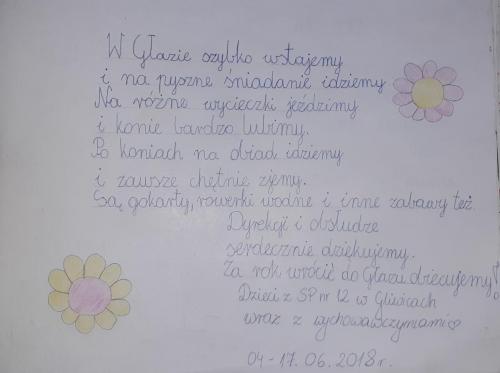 W Głazie szybko wstajemy
i na pyszne śniadanie idziemy
Na różne wycieczki jeździmy
i konie bardzo lubimy.
Po koniach na obiad idziemy
i zawsze chętnie zjemy.
Są gokarty, rowerki wodne i inne zabawy też.
Dyrekcji i obsłudze
serdecznie dziękujemy.
Za rok wrócić do Głazu obiecujemy!
Dzieci z SP nr 12 w Gliwicach
wraz z wychowawczyniami♡
04-17.06.2018r.